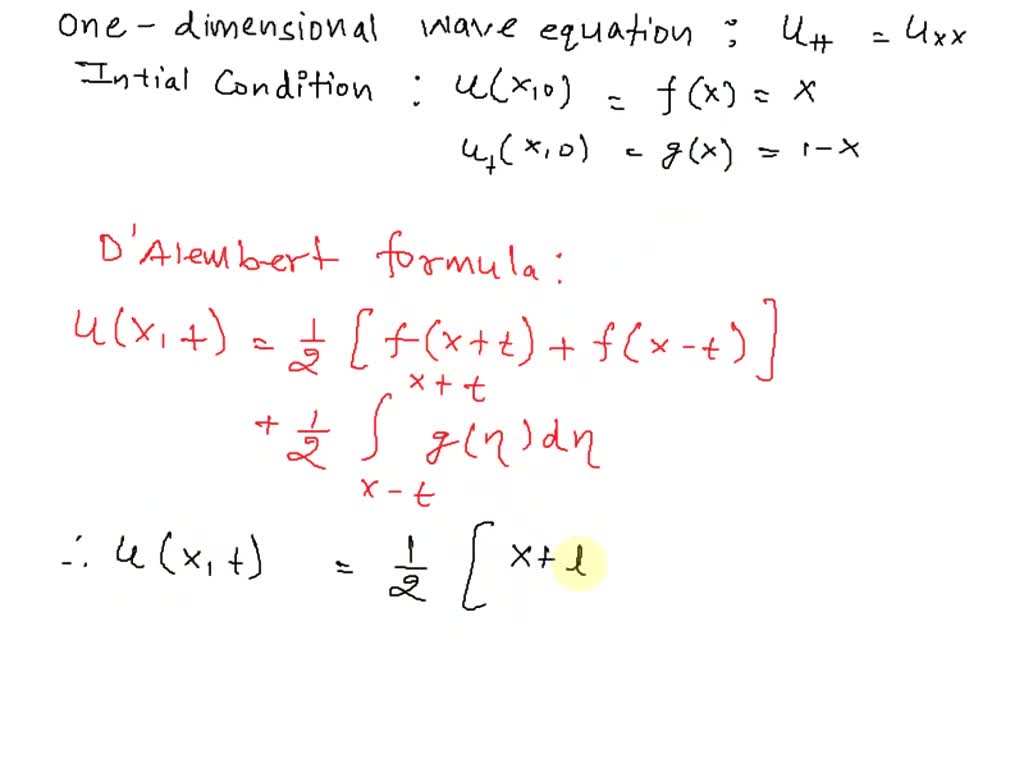 One-dimensional wave equation : u_tt = u_xx
Intial Condition : u(x,0) = f(x) = x
u_t(x,0) = g(x) = 1-x
D'Alembert formula:
u(x,t) = 1/2 [f(x+t) + f(x-t)]
+ 1/2 ∫_{x-t}^{x+t} g(η)dη
∴ u(x,t) = 1/2 [x+